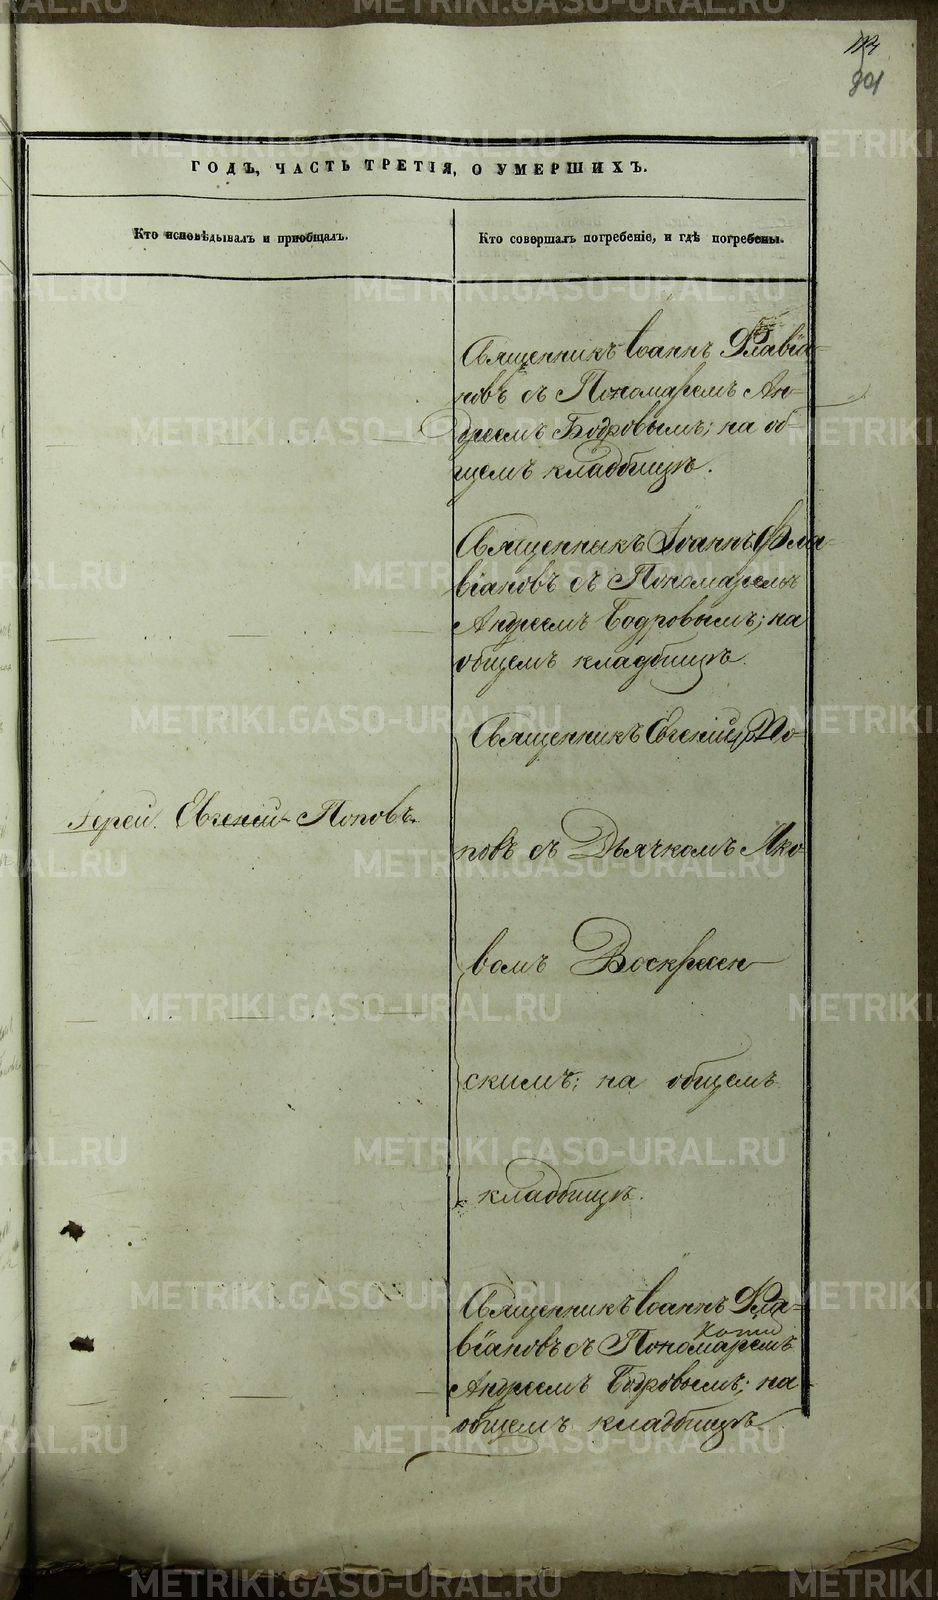 ГОДЪ, ЧАСТЬ ТРЕТІЯ, О УМЕРШИХЪ.
Кто исповѣдывалъ и приобщалъ.
Кто совершалъ погребеніе, и гдѣ погребены.
Священникъ Іоаннъ Флавіа-
новъ съ Пономаремъ Ан-
дреемъ Бодровымъ; на об-
щемъ кладбищѣ.
Священникъ Іоаннъ Фла-
віановъ съ Пономаремъ
Андреемъ Бодровымъ; на
общемъ кладбищѣ.
Іерей Евгеній Поповъ.
Священникъ Евгеній По-
повъ съ Дьячкомъ Яко-
вомъ Воскресен-
скимъ; на общемъ
кладбищѣ.
Священникъ Іоаннъ Фла-
віановъ съ Пономаремъ
Андреемъ Бодровымъ; на
общемъ кладбищѣ.
METRIKI.GASO-URAL.RU